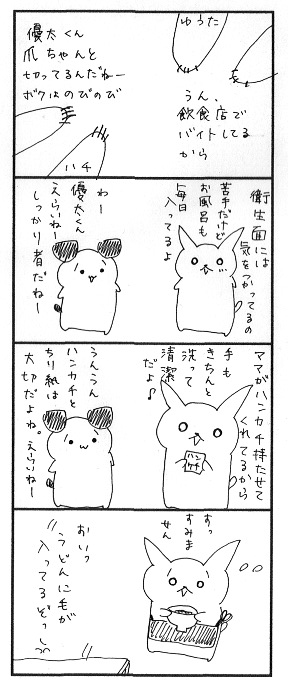 ゆうた
優太くん
爪ちゃんと
切ってるんだねー
ボクはのびのび
ハチ
うん、
飲食店で
バイトしてる
から
衛生面には
気をつかってるの
苦手だけど
お風呂も
毎日
入ってるよ
わー
優太くん
えらいねー
しっかり者だねー
ママがハンカチ持たせて
くれてるから
手も
きちんと
洗って
清潔
だよ♪
ハン
ケチ
うんうん
ハンカチと
ちり紙は
大切だよね。
えらいねー
すっ
すみま
せん
おいっ
うどんに毛が
入ってるぞっ